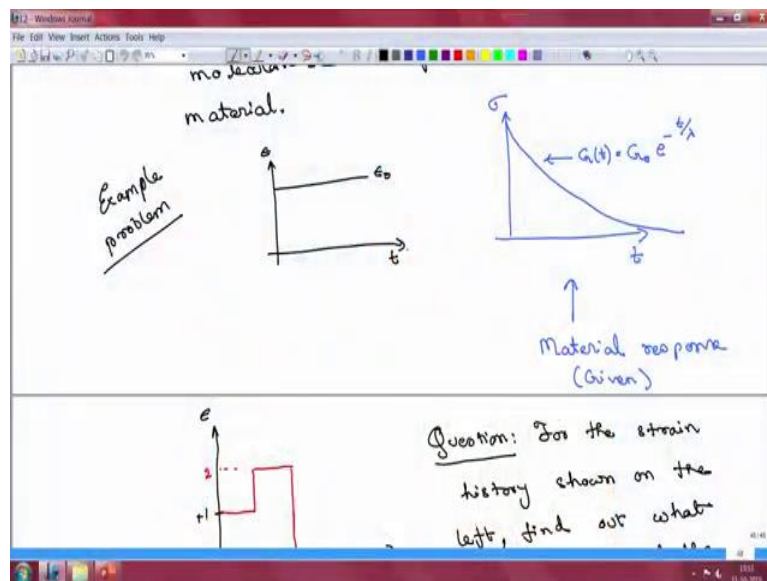 12 - Windows Journal
File Edit View Insert Actions Tools Help
material.
Example
problem
ε
ε₀
t
σ
← G(t) = G₀ e^{-t/λ}
t
Material response
(Given)
ε
2
+1
Question: For the strain
history shown on the
left, find out what